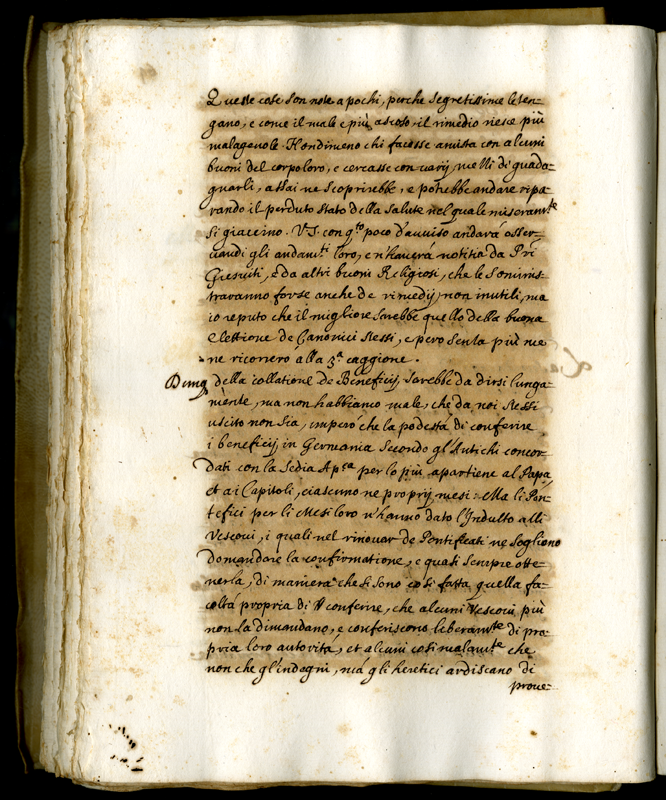 Queste cose son note a pochi, perche segretissime le ten-
gano, e come il male e più ascoso, il rimedio riesce più
malagevole. Nondimeno chi facesse amistà con alcuni
buoni del corpo loro, e cercasse con varij mezzi di guada-
gnarli, assai ne scoprirebbe, e potrebbe andare ripa-
rando il perduto stato della salute nel quale miseramte
si giacciono. V.S. con qto poco d'avviso andarà osser-
vando gli andamti loro, e n'haverà notitia da Pri
Giesuiti, e da altri buoni Religiosi, che le sominis-
traranno forse anche de rimedij non inutili, ma
io reputo che il migliore sarebbe quello della buona
elettione de Canonici stessi, e però senza più me
ne ricorrerò alla 3a caggione.
Dunq della collatione de Beneficij sarebbe da dirsi lunga-
mente, ma non habbiamo male, che da noi stessi
uscito non sia, imperò che la podestà di conferire
i beneficij in Germania secondo gl'Antichi concor-
dati con la Sedia Apca per lo più apartiene al Papa,
et ai Capitoli, ciascuno ne proprij mesi: Ma li Pon-
tefici per li Mesi loro n'hanno dato l'Indulto alli
Vescovi, i quali nel rinovar de Pontificati ne sogliono
domandare la confirmatione, e quasi sempre otte-
nerla, di maniera che si sono così fatta quella fa-
coltà propria di conferire, che alcuni Vescovi più
non la dimandano, e conferiscono liberamte di pro-
pria loro autorità, et alcuni così malamte che
non che gl'indegni, mà gli heretici ardiscano di
prove-